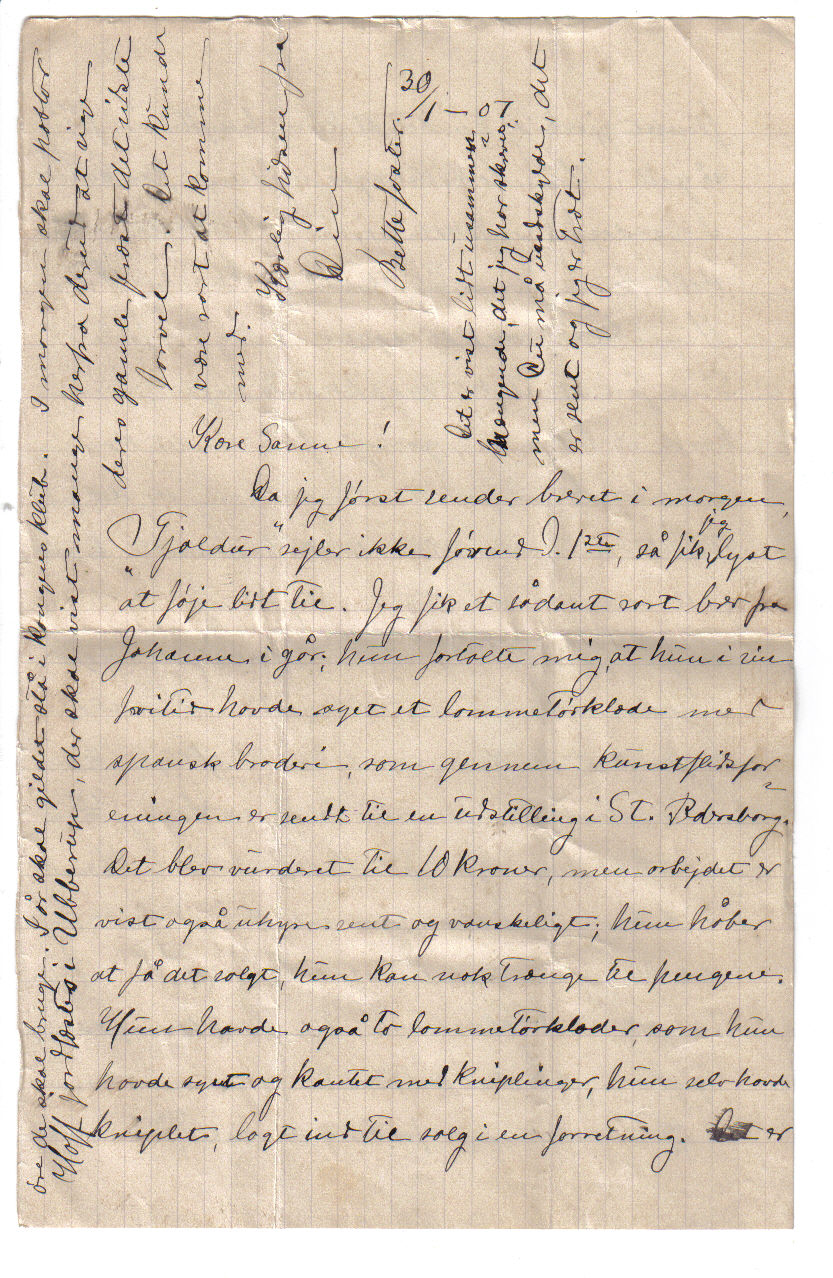 30/1 – 07
Kære Sanne!
Da jeg först sender brevet i morgen,
"Tjaldur" sejler ikke förend D. 1ste, så fik jeg lyst
at föje lidt til. Jeg fik et sådant sört brev fra
Johanne i går; hun fortalte mig, at hun i sin
fritid havde syet et lommetörklæde med
spansk broderi, som gennem Kunstflidsfor-
eningen er sendt til en udstilling i St. Pedersborg.
Det blev vurderet til 10 Kroner, men arbejdet er
vist også uhyre sent og vanskeligt; hun håber
at få det solgt, hun kan nok trænge til pengene.
Hun havde også to lommetörklæder, som hun
havde syet og kantet med kniplinger, hun selv havde
kniplet, lagt ind til salg i en forretning. Det er
öre de skal bruge. I år skal gildet stå i Kongens Klub. I morgen skal pastor
Hoff jordfæstes i Ubberup, der skal vist mange herfra derud at sige
deres gamle præst det sidste
farvel. Det kunde
være rart at komme
med. Kærlig hilsen fra
Din
Bettefaster.
Det er vist lidt usammen-
hængende, det jeg har skrevet,
men Du må undskylde, det
er sent og jeg er træt.